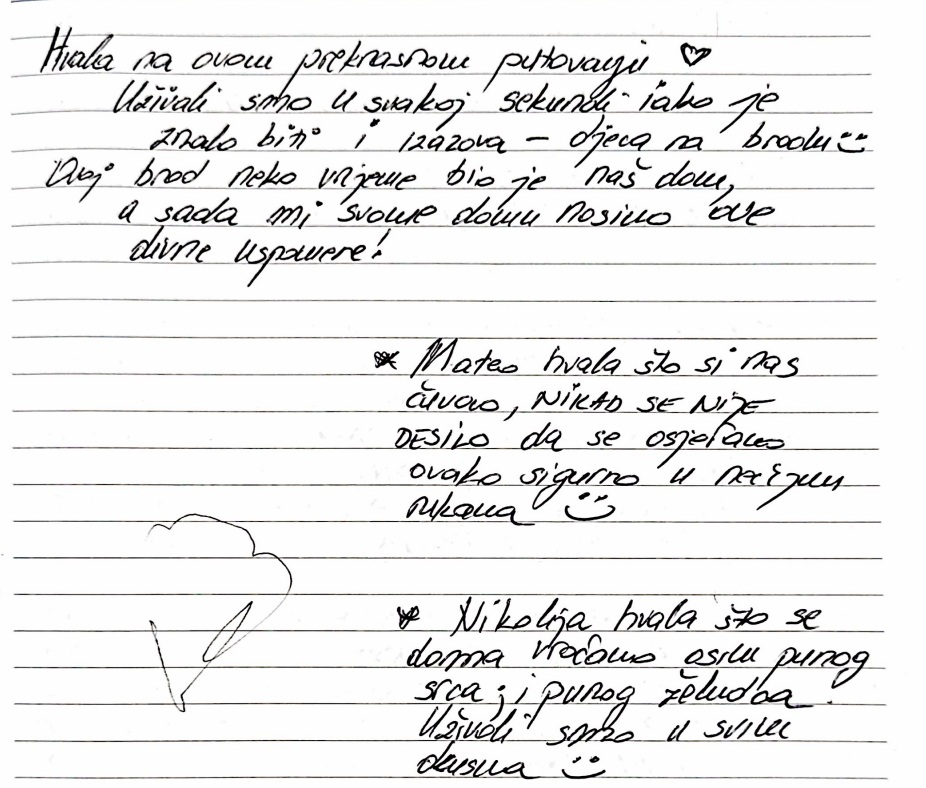 Hvala na ovom prekrasnom putovanju ♡
Uživali smo u svakoj sekundi iako je
znalo biti i izazova – djeca na brodu :)
Ovaj brod neko vrijeme bio je naš dom,
a sada mi svome domu nosimo ove
divne uspomene!
* Mateo hvala što si nas
čuvao, NIKAD SE NIJE
DESILO da se osjećamo
ovako sigurno u nečijim
rukama :)
* Nikolija hvala što se
doma vraćamo osim punog
srca i punog želudca.
Uživali smo u svim
okusima :)